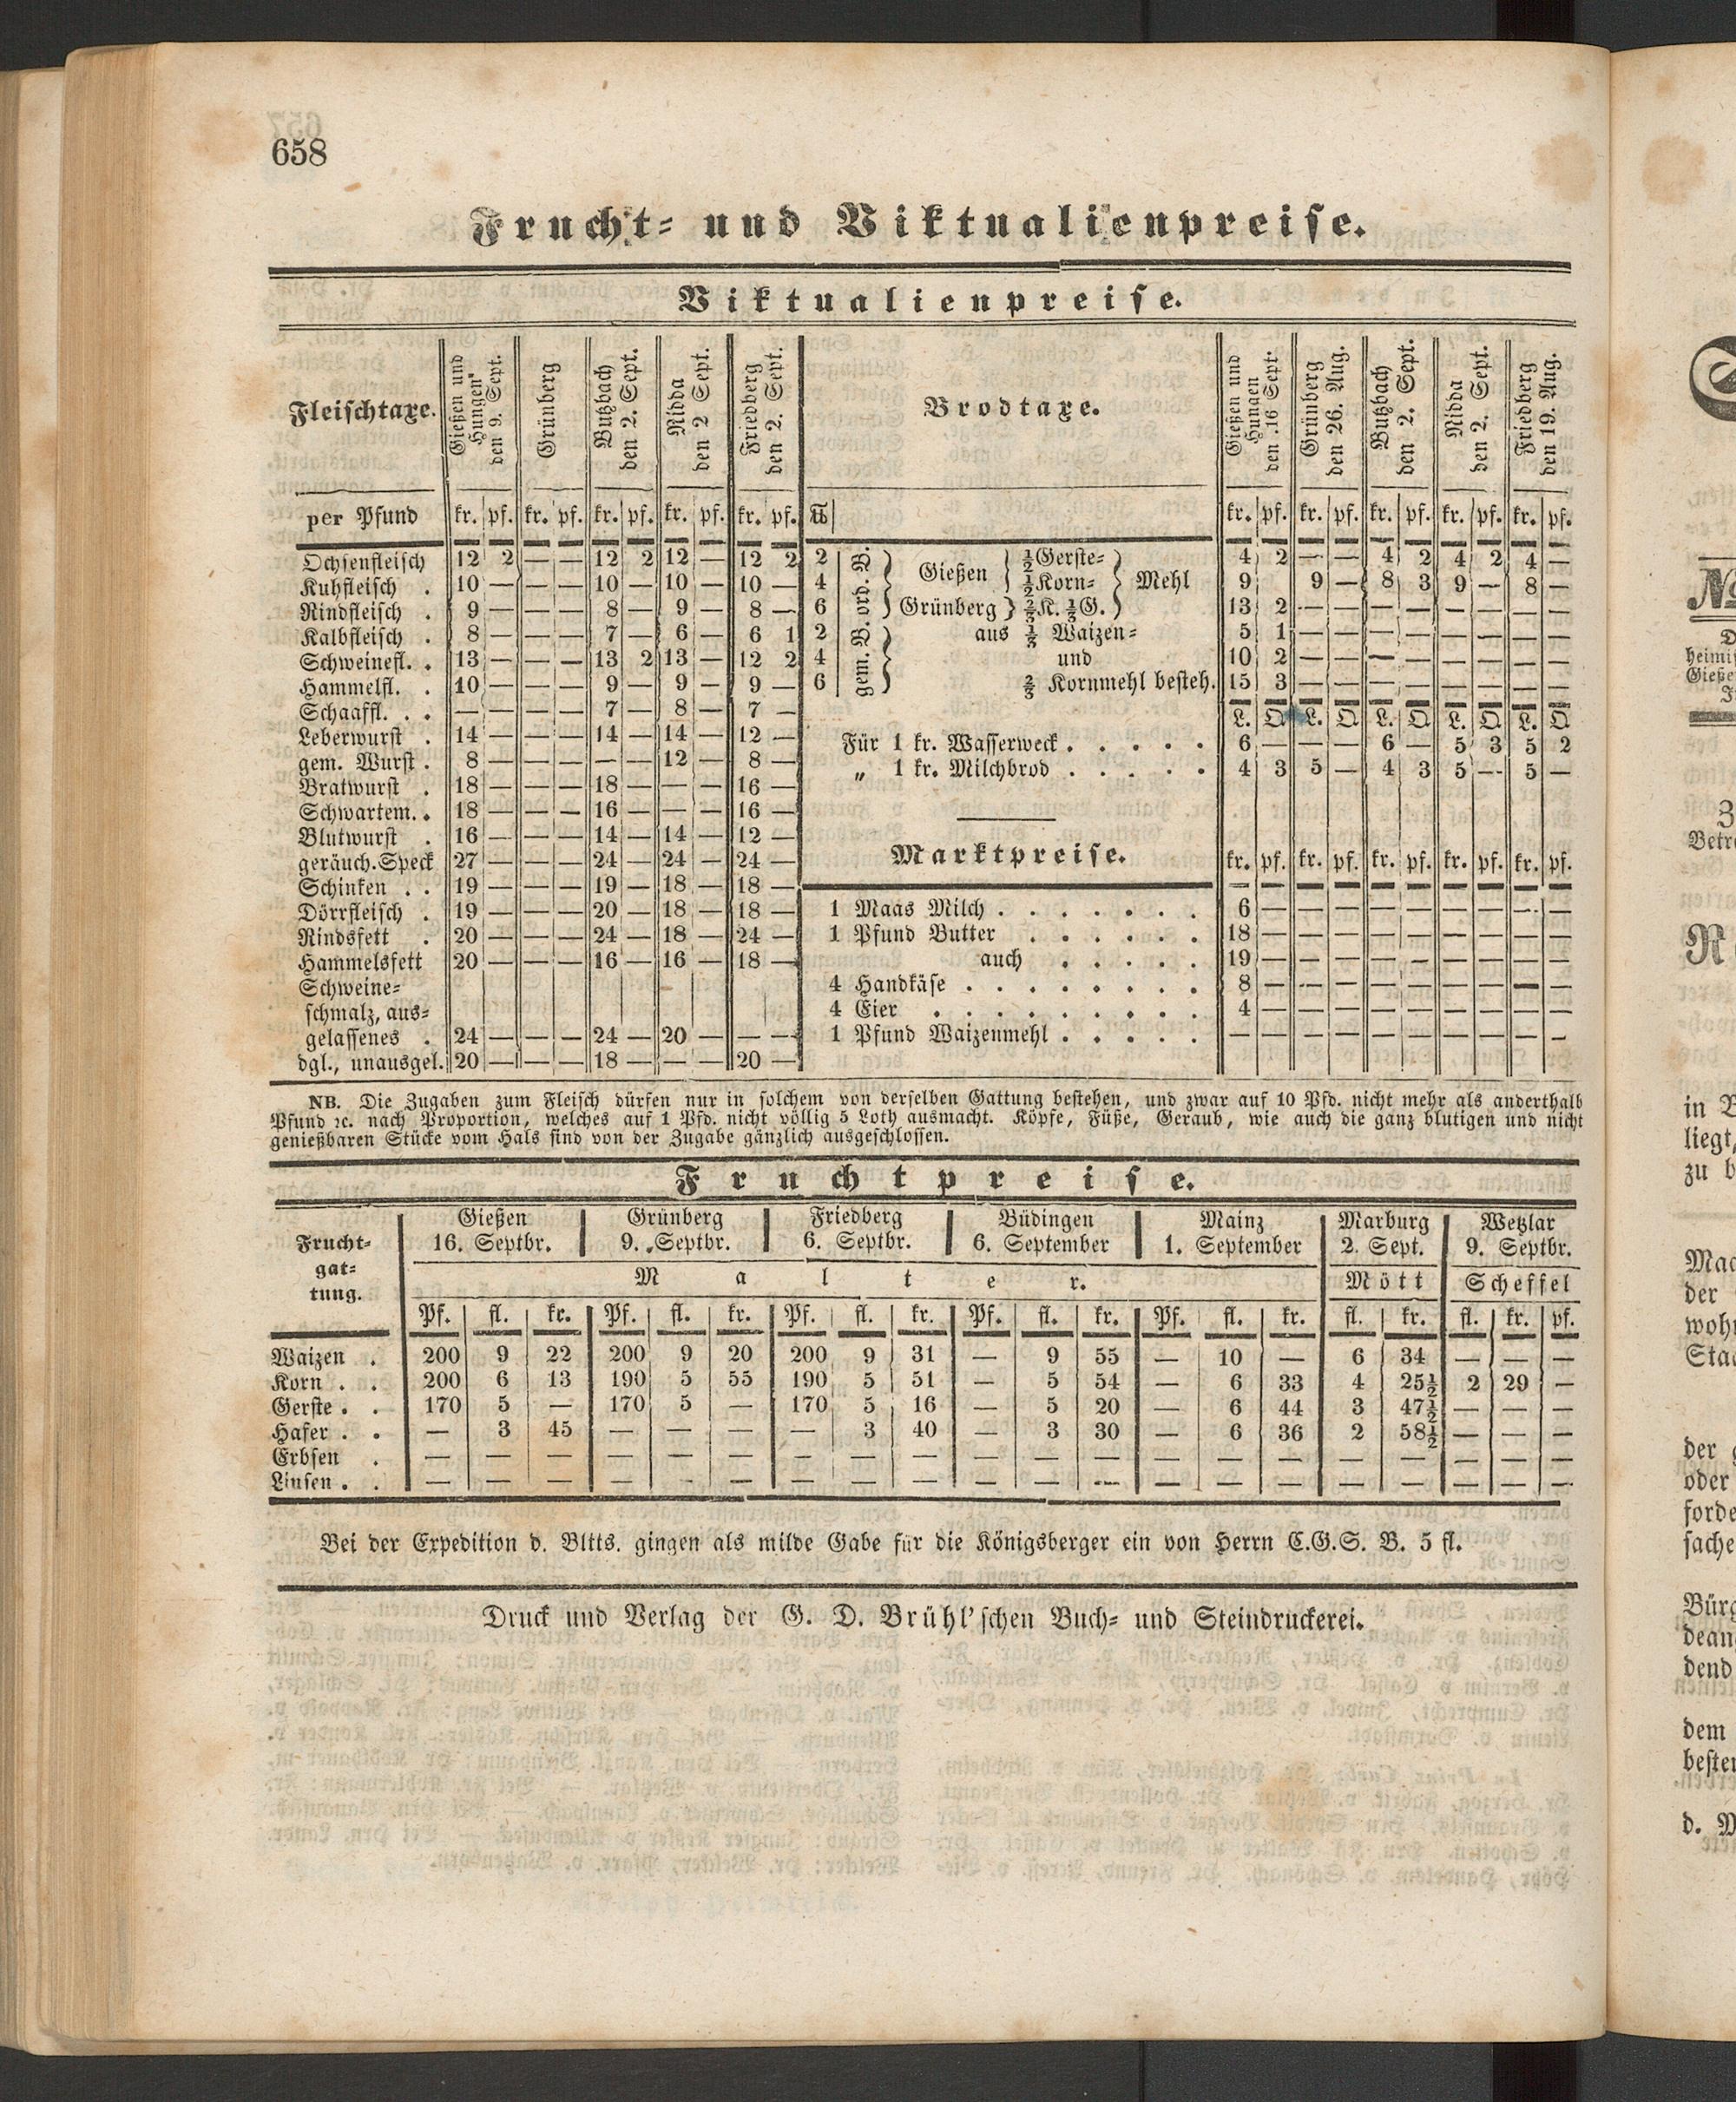 658
Frucht- und Viktualienpreise.
Viktualienpreise.
Fleischtaxe. | Gießen und Hungen den 9. Sept. | Grünberg | Butzbach den 2. Sept. | Nidda den 2 Sept. | Friedberg den 2. Sept.
per Pfund | kr. | pf. | kr. | pf. | kr. | pf. | kr. | pf. | kr. | pf.
Ochsenfleisch | 12 | 2 | — | — | 12 | 2 | 12 | — | 12 | 2
Kuhfleisch . | 10 | — | — | — | 10 | — | 10 | — | 10 | —
Rindfleisch . | 9 | — | — | — | 8 | — | 9 | — | 8 | —
Kalbfleisch . | 8 | — | — | — | 7 | — | 6 | — | 6 | 1
Schweinefl. . | 13 | — | — | — | 13 | 2 | 13 | — | 12 | 2
Hammelfl. . | 10 | — | — | — | 9 | — | 9 | — | 9 | —
Schaaffl. . . | — | — | — | — | 7 | — | 8 | — | 7 | —
Leberwurst . | 14 | — | — | — | 14 | — | 14 | — | 12 | —
gem. Wurst . | 8 | — | — | — | — | — | 12 | — | 8 | —
Bratwurst . | 18 | — | — | — | 18 | — | — | — | 16 | —
Schwartem. . | 18 | — | — | — | 16 | — | — | — | 16 | —
Blutwurst . | 16 | — | — | — | 14 | — | 14 | — | 12 | —
geräuch. Speck | 27 | — | — | — | 24 | — | 24 | — | 24 | —
Schinken . . | 19 | — | — | — | 19 | — | 18 | — | 18 | —
Dörrfleisch . | 19 | — | — | — | 20 | — | 18 | — | 18 | —
Rindsfett . | 20 | — | — | — | 24 | — | 18 | — | 24 | —
Hammelsfett | 20 | — | — | — | 16 | — | 16 | — | 18 | —
Schweine-
schmalz, aus-
gelassenes . | 24 | — | — | — | 24 | — | 20 | — | — | —
dgl., unausgel. | 20 | — | — | — | 18 | — | — | — | 20 | —
Brodtaxe. | Gießen und Hungen den 16 Sept. | Grünberg den 26. Aug. | Butzbach den 2. Sept. | Nidda den 2. Sept. | Friedberg den 19. Aug.
℔ | kr. | pf. | kr. | pf. | kr. | pf. | kr. | pf. | kr. | pf.
2 | ord. B. | Gießen | ½ Gerste- | 4 | 2 | — | — | 4 | 2 | 4 | 2 | 4 | —
4 | ½ Korn- | Mehl | 9 | | 9 | — | 8 | 3 | 9 | — | 8 | —
6 | Grünberg ⅔ K. ⅓ G. | 13 | 2 | — | — | — | — | — | — | — | —
2 | gem. B. | aus ⅓ Waizen- | 5 | 1 | — | — | — | — | — | — | — | —
4 | und | 10 | 2 | — | — | — | — | — | — | — | —
6 | ⅔ Kornmehl besteh. | 15 | 3 | — | — | — | — | — | — | — | —
L. | Q | L. | Q | L. | Q | L. | Q | L. | Q
Für 1 kr. Wasserweck . . . . . | 6 | — | — | — | 6 | — | 5 | 3 | 5 | 2
„ 1 kr. Milchbrod . . . . . | 4 | 3 | 5 | — | 4 | 3 | 5 | — | 5 | —
Marktpreise. | kr. | pf. | kr. | pf. | kr. | pf. | kr. | pf. | kr. | pf.
1 Maas Milch . . . . . . . | 6 | — | — | — | — | — | — | — | — | —
1 Pfund Butter . . . . . . | 18 | — | — | — | — | — | — | — | — | —
auch . . . . . | 19 | — | — | — | — | — | — | — | — | —
4 Handkäse . . . . . . . . | 8 | — | — | — | — | — | — | — | — | —
4 Eier . . . . . . . . . | 4 | — | — | — | — | — | — | — | — | —
1 Pfund Waizenmehl . . . . . | — | — | — | — | — | — | — | — | — | —
NB. Die Zugaben zum Fleisch dürfen nur in solchem von derselben Gattung bestehen, und zwar auf 10 Pfd. nicht mehr als anderthalb
Pfund ꝛc. nach Proportion, welches auf 1 Pfd. nicht völlig 5 Loth ausmacht. Köpfe, Füße, Geraub, wie auch die ganz blutigen und nicht
genießbaren Stücke vom Hals sind von der Zugabe gänzlich ausgeschlossen.
Fruchtpreise.
Frucht-gat-tung. | Gießen 16. Septbr. | Grünberg 9. Septbr. | Friedberg 6. Septbr. | Büdingen 6. September | Mainz 1. September | Marburg 2. Sept. | Wetzlar 9. Septbr.
Malter. | Mött | Scheffel
Pf. | fl. | kr. | Pf. | fl. | kr. | Pf. | fl. | kr. | Pf. | fl. | kr. | Pf. | fl. | kr. | fl. | kr. | fl. | kr. | pf.
Waizen . | 200 | 9 | 22 | 200 | 9 | 20 | 200 | 9 | 31 | — | 9 | 55 | — | 10 | — | 6 | 34 | — | — | —
Korn . . | 200 | 6 | 13 | 190 | 5 | 55 | 190 | 5 | 51 | — | 5 | 54 | — | 6 | 33 | 4 | 25½ | 2 | 29 | —
Gerste . . | 170 | 5 | — | 170 | 5 | — | 170 | 5 | 16 | — | 5 | 20 | — | 6 | 44 | 3 | 47½ | — | — | —
Hafer . . | — | 3 | 45 | — | — | — | — | 3 | 40 | — | 3 | 30 | — | 6 | 36 | 2 | 58½ | — | — | —
Erbsen . | — | — | — | — | — | — | — | — | — | — | — | — | — | — | — | — | — | — | — | —
Linsen . . | — | — | — | — | — | — | — | — | — | — | — | — | — | — | — | — | — | — | — | —
Bei der Expedition d. Bltts. gingen als milde Gabe für die Königsberger ein von Herrn C.G.S. B. 5 fl.
Druck und Verlag der G. D. Brühl'schen Buch- und Steindruckerei.
No
in
liegt,
zu
der
der
oder
dend
dem
d.